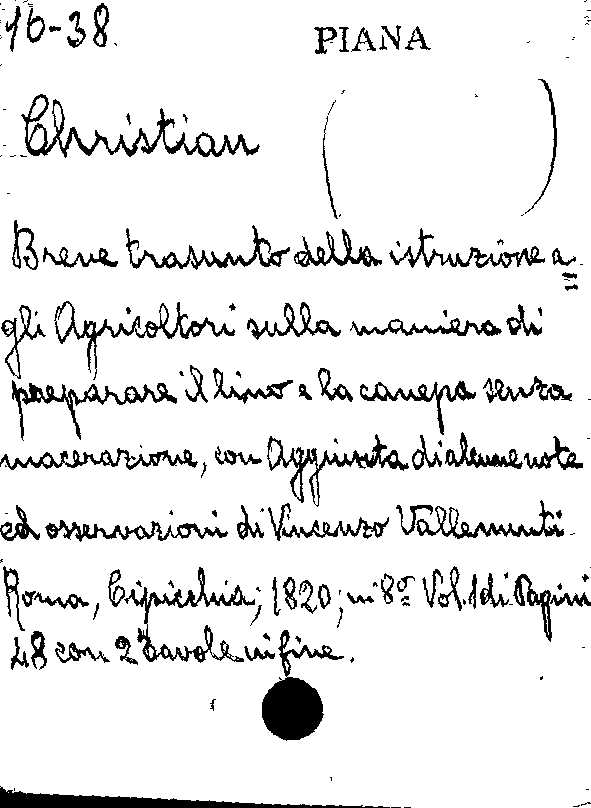 16-38.
PIANA
Christian ( )
Breve trasunto della istruzione a=
gli Agricoltori sulla maniera di
preparare il lino e la canepa senza
macerazione, con Aggiunta di alcune note
ed osservazioni di Vincenzo Vallemunti
Roma, Cipicchia; 1820; in 8º Vol. 1 di Pagini
48 con 2 Tavole in fine.